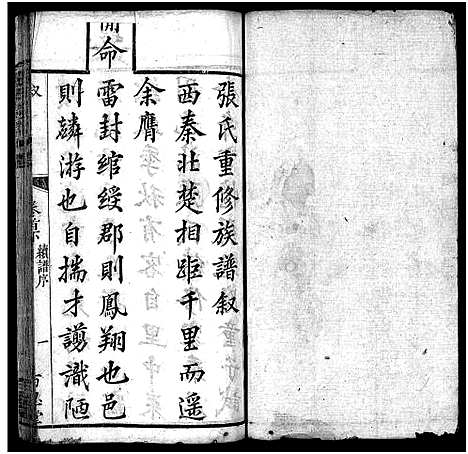 張氏重修族譜叙
西秦北楚相距千里而遥
余膺
簡命
雷封綰綬郡則鳳翔也邑
則麟游也自揣才譾識陋
叙
卷首 續譜序 一